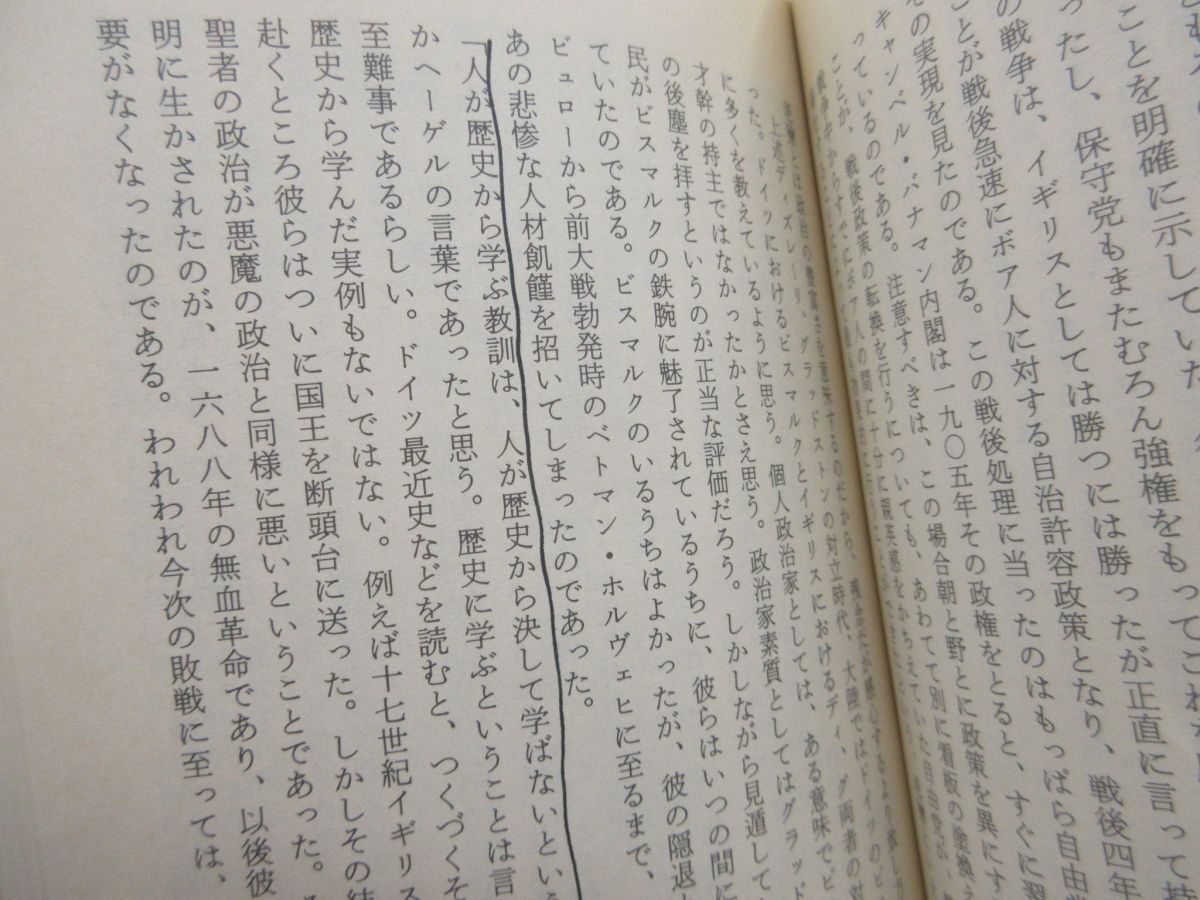 とも
ことを明確に示していた
ったし、保守党もまたむろん強権をもってこれ
の戦争は、イギリスとしては勝つには勝ったが正直に言って
ことが戦後急速にボア人に対する自治許容政策となり、戦後四年
その実現を見たのである。この戦後処理に当ったのはもっぱら自由
キャンベル・バナマン内閣は一九〇五年その政権をとると、すぐに
っているのである。注意すべきは、この場合朝と野とに政策を異にす
ことが、戦後政策の転換を行うについても、あわてて別に看板の塗換
ボア人の間に十分に親英感をかちえていた自由党が
上述ディズレーリ、グラッドストンの対立時代、大陸ではドイツのビ
った。ドイツにおけるビスマルクとイギリスにおけるディ、グ両者の対
に多くを教えているように思う。個人政治家としては、ある意味でビ
才幹の持主ではなかったかとさえ思う。政治家素質としてはグラッド
の後塵を拝すというのが正当な評価だろう。しかしながら見遁して
民がビスマルクの鉄腕に魅了されているうちに、彼らはいつの間に
ていたのである。ビスマルクのいるうちはよかったが、彼の隠退
ビューローから前大戦勃発時のベトマン・ホルヴェヒに至るまで、
あの悲惨な人材飢饉を招いてしまったのであった。
「人が歴史から学ぶ教訓は、人が歴史から決して学ばないという
かヘーゲルの言葉であったと思う。歴史に学ぶということは言
至難事であるらしい。ドイツ最近史などを読むと、つくづくそ
歴史から学んだ実例もないではない。例えば十七世紀イギリス
赴くところ彼らはついに国王を断頭台に送った。しかしその結
聖者の政治が悪魔の政治と同様に悪いということであった。
明に生かされたのが、一六八八年の無血革命であり、以後彼
要がなくなったのである。われわれ今次の敗戦に至っては、